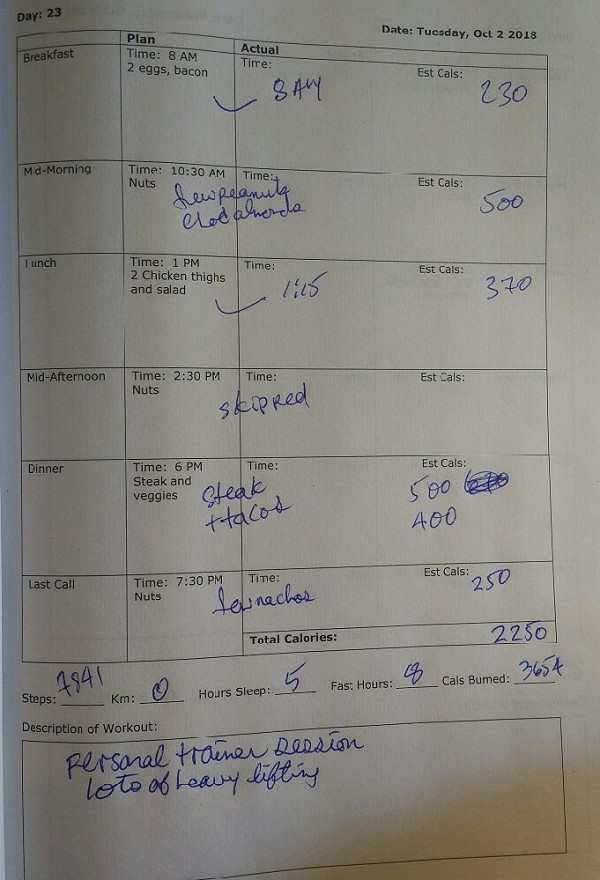 Day: 23
Date: Tuesday, Oct 2 2018
Plan
Actual
Breakfast
Time: 8 AM
2 eggs, bacon
Time:
8 AM
Est Cals:
230
Mid-Morning
Time: 10:30 AM
Nuts
Time:
few peanuts
almonds
Est Cals:
500
Lunch
Time: 1 PM
2 Chicken thighs
and salad
Time:
1:15
Est Cals:
370
Mid-Afternoon
Time: 2:30 PM
Nuts
Time:
skipped
Est Cals:
Dinner
Time: 6 PM
Steak and
veggies
Time:
Steak
+ tacos
Est Cals:
500
400
Last Call
Time: 7:30 PM
Nuts
Time:
few nachos
Est Cals:
250
Total Calories:
2250
Steps: 7841 Km: 0 Hours Sleep: 5 Fast Hours: 8 Cals Burned: 3654
Description of Workout:
Personal trainer session
lots of heavy lifting